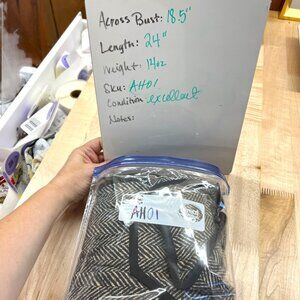 Across Bust: 18.5"
Length: 24"
Weight: 14oz
Sku: AH01
Condition: excellent
Notes:
AH01